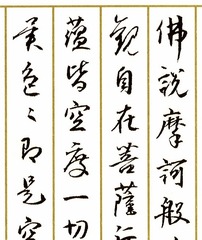 佛說摩訶般
觀自在菩薩行
蘊皆空度一切
異色々即是空